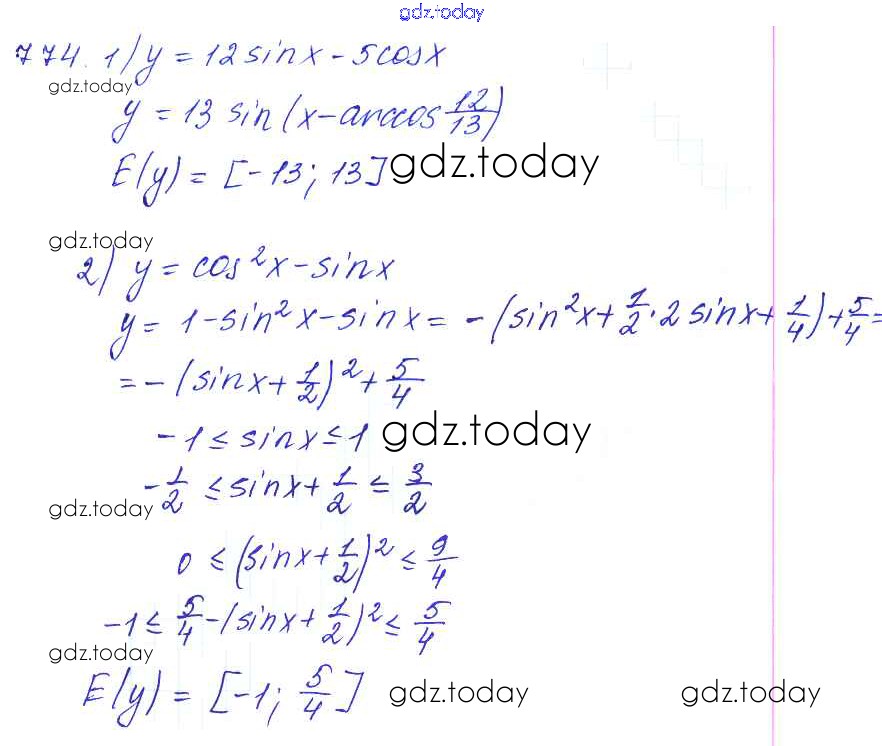 gdz.today
774. 1) y = 12 sin x - 5 cos x
gdz.today
y = 13 sin (x - arccos 12/13)
E(y) = [-13; 13] gdz.today
gdz.today
2) y = cos²x - sin x
y = 1 - sin²x - sin x = - (sin²x + 1/2 · 2 sin x + 1/4) + 5/4 =
= - (sin x + 1/2)² + 5/4
-1 ≤ sin x ≤ 1 gdz.today
-1/2 ≤ sin x + 1/2 ≤ 3/2
gdz.today
0 ≤ (sin x + 1/2)² ≤ 9/4
-1 ≤ 5/4 - (sin x + 1/2)² ≤ 5/4
gdz.today
E(y) = [-1; 5/4] gdz.today gdz.today